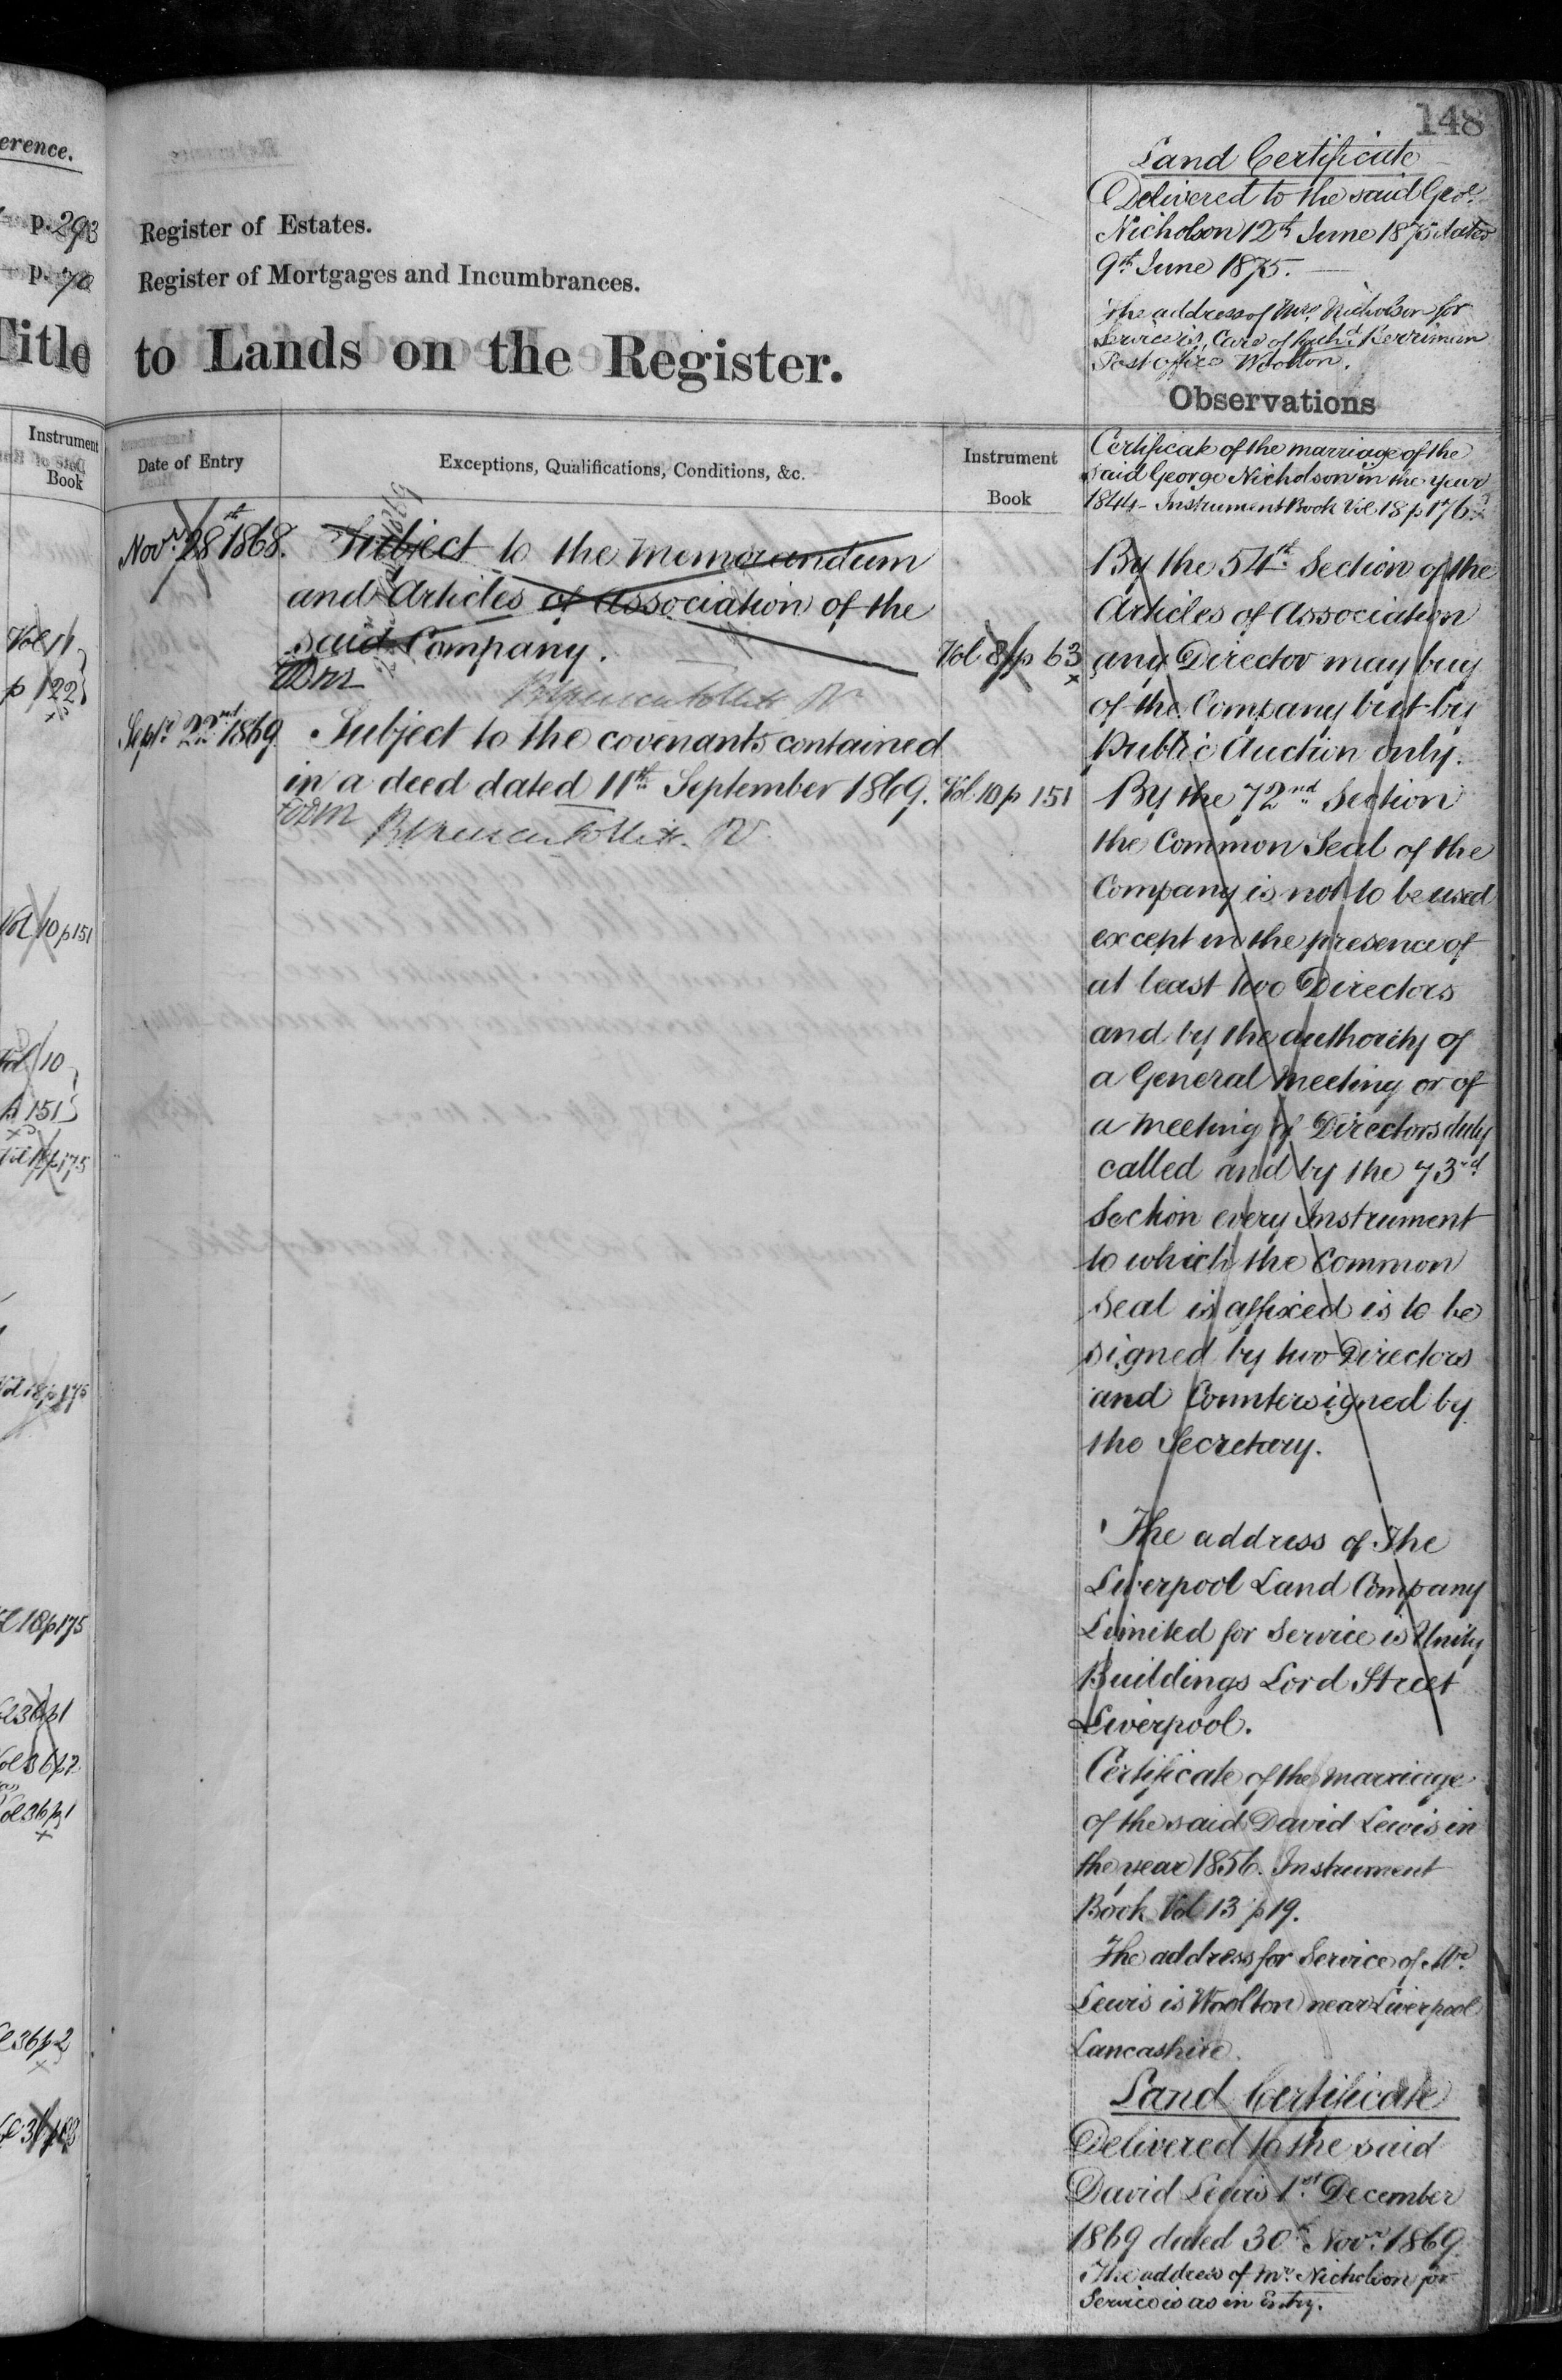 148
erence.
p. 293
p. 70
Title
Instrument
Book
Vol 11
p 122
Vol 10 p 151
Vol 10
p 151
p 175
Vol 18 p 175
18 p 175
36 p 1
36 p 2
36 p 1
36 p 2
Register of Estates.
Register of Mortgages and Incumbrances.
to Lands on the Register.
Date of Entry
Exceptions, Qualifications, Conditions, &c.
Instrument
Book
Novr. 28th 1868. Subject to the Memorandum
and Articles of Association of the
said Company. Vol 8 p 63
Septr. 22nd 1869 Subject to the covenants contained
in a deed dated 11th September 1869. Vol. 10 p 151
Land Certificate
Delivered to the said Geoe.
Nicholson 12th June 1875 dated
9th June 1875.
The address of Mrs. Nicholson for
Service is, Care of Richd. Kerriman
Post Office Woolton.
Observations
Certificate of the marriage of the
said George Nicholson in the year
1844 - Instrument Book Vol 18 p 176
By the 54th Section of the
Articles of Association
any Director may buy
of the Company but by
Public Auction only.
By the 72nd Section
the Common Seal of the
Company is not to be used
except in the presence of
at least two Directors
and by the authority of
a General Meeting or of
a meeting of Directors duly
called and by the 73rd
Section every Instrument
to which the Common
Seal is affixed is to be
signed by two Directors
and Countersigned by
the Secretary.
The address of The
Liverpool Land Company
Limited for Service is Unity
Buildings Lord Street
Liverpool.
Certificate of the Marriage
of the said David Lewis in
the year 1856. Instrument
Book Vol 13 p 19.
The address for Service of Mr.
Lewis is Woolton near Liverpool
Lancashire.
Land Certificate
Delivered to the said
David Lewis 1st December
1869 dated 30th Novr. 1869.
The address of Mr. Nicholson for
Service is as in Entry.